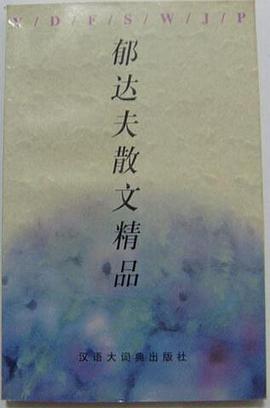 Y/D/F/S/W/J/P
郁达夫散文精品
汉语大词典出版社